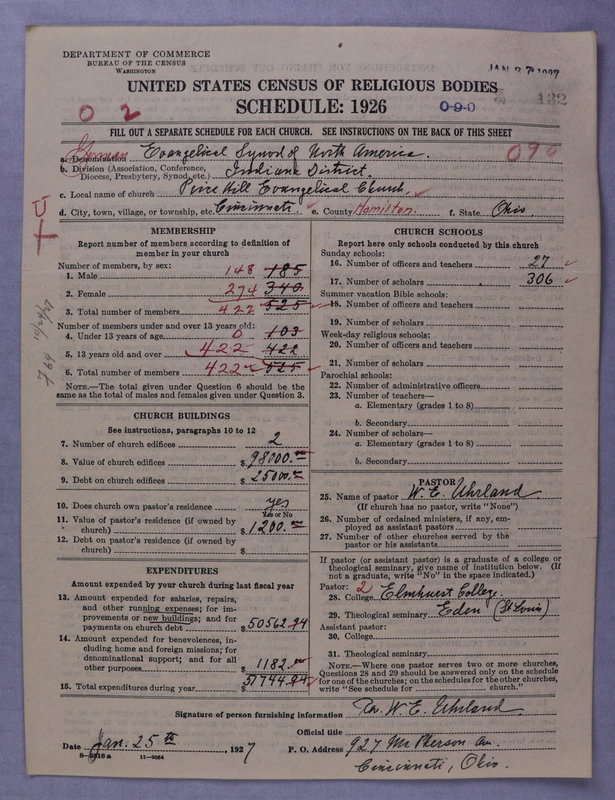 DEPARTMENT OF COMMERCE
BUREAU OF THE CENSUS
WASHINGTON
UNITED STATES CENSUS OF RELIGIOUS BODIES
SCHEDULE: 1926
0 2
0-9-0
132
FILL OUT A SEPARATE SCHEDULE FOR EACH CHURCH. SEE INSTRUCTIONS ON THE BACK OF THIS SHEET
German
090
a. Denomination Evangelical Synod of North America.
b. Division (Association, Conference, Diocese, Presbytery, Synod, etc.) Indiana District.
c. Local name of church Price Hill Evangelical Church
d. City, town, village, or township, etc. Cincinnati. e. County Hamilton. f. State Ohio.
MEMBERSHIP
Report number of members according to definition of
member in your church
Number of members, by sex:
1. Male 148 185
2. Female 274 340
3. Total number of members 422 525
Number of members under and over 13 years old:
4. Under 13 years of age 0 103
5. 13 years old and over 422 422
6. Total number of members 422 525
NOTE.—The total given under Question 6 should be the
same as the total of males and females given under Question 3.
CHURCH BUILDINGS
See instructions, paragraphs 10 to 12
7. Number of church edifices 2
8. Value of church edifices $98000.00
9. Debt on church edifices $25000.00
10. Does church own pastor's residence yes
Yes or No
11. Value of pastor's residence (if owned by
church) $1200.00
12. Debt on pastor's residence (if owned by
church) $
EXPENDITURES
Amount expended by your church during last fiscal year
13. Amount expended for salaries, repairs,
and other running expenses; for im-
provements or new buildings; and for
payments on church debt $50562.94
14. Amount expended for benevolences, in-
cluding home and foreign missions; for
denominational support; and for all
other purposes 1182.00
15. Total expenditures during year $51744.94
CHURCH SCHOOLS
Report here only schools conducted by this church
Sunday schools:
16. Number of officers and teachers 27
17. Number of scholars 306
Summer vacation Bible schools:
18. Number of officers and teachers
19. Number of scholars
Week-day religious schools:
20. Number of officers and teachers
21. Number of scholars
Parochial schools:
22. Number of administrative officers
23. Number of teachers—
a. Elementary (grades 1 to 8)
b. Secondary
24. Number of scholars—
a. Elementary (grades 1 to 8)
b. Secondary
PASTOR
25. Name of pastor W. E. Uhrland
(If church has no pastor, write "None")
26. Number of ordained ministers, if any, em-
ployed as assistant pastors
27. Number of other churches served by the
pastor or his assistants
If pastor (or assistant pastor) is a graduate of a college or
theological seminary, give name of institution below. (If
not a graduate, write "No" in the space indicated.)
Pastor: 2
28. College Elmhurst College.
29. Theological seminary Eden (St Louis)
Assistant pastor:
30. College
31. Theological seminary
NOTE.—Where one pastor serves two or more churches,
Questions 28 and 29 should be answered only on the schedule
for one of the churches; on the schedules for the other churches,
write "See schedule for church."
Signature of person furnishing information W. E. Uhrland
Official title
Date Jan. 25th, 1927 P. O. Address 927 McPherson Av.
Cincinnati, Ohio.
8—5818a 11—9024